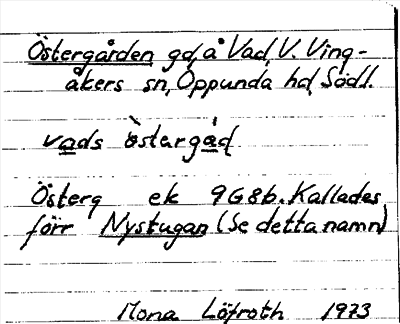 Östergården gd, å Vad, V. Ving-
åkers sn, Oppunda hd, Södl.
vads östergåd
Österg ek 9G8b. Kallades
förr Nystugan (Se detta namn)
Mona Löfroth 1973